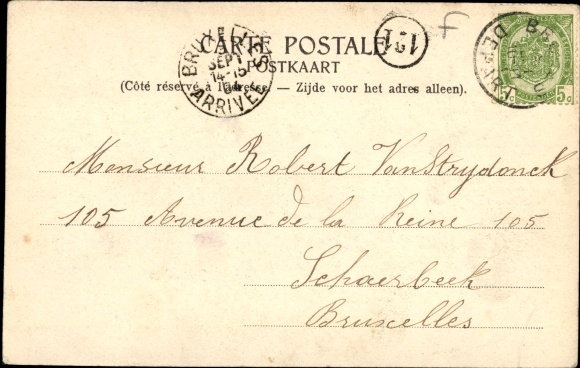 CARTE POSTALE
POSTKAART
(Côté réservé à l'adresse. — Zijde voor het adres alleen).
BRUXELLES
SEPT
14-15
04
ARRIVÉE
121
F
DEPART
5c
Monsieur Robert VanStrydonck
105 Avenue de la Reine 105
Schaerbeek
Bruxelles